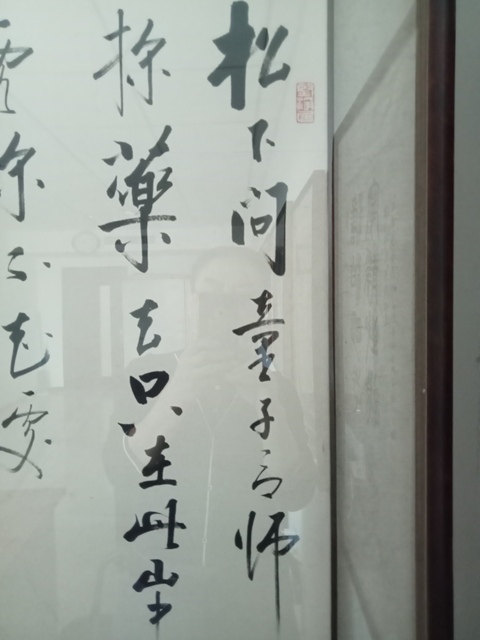 松下問童子言師
採藥去只在此山中
雲深不知處